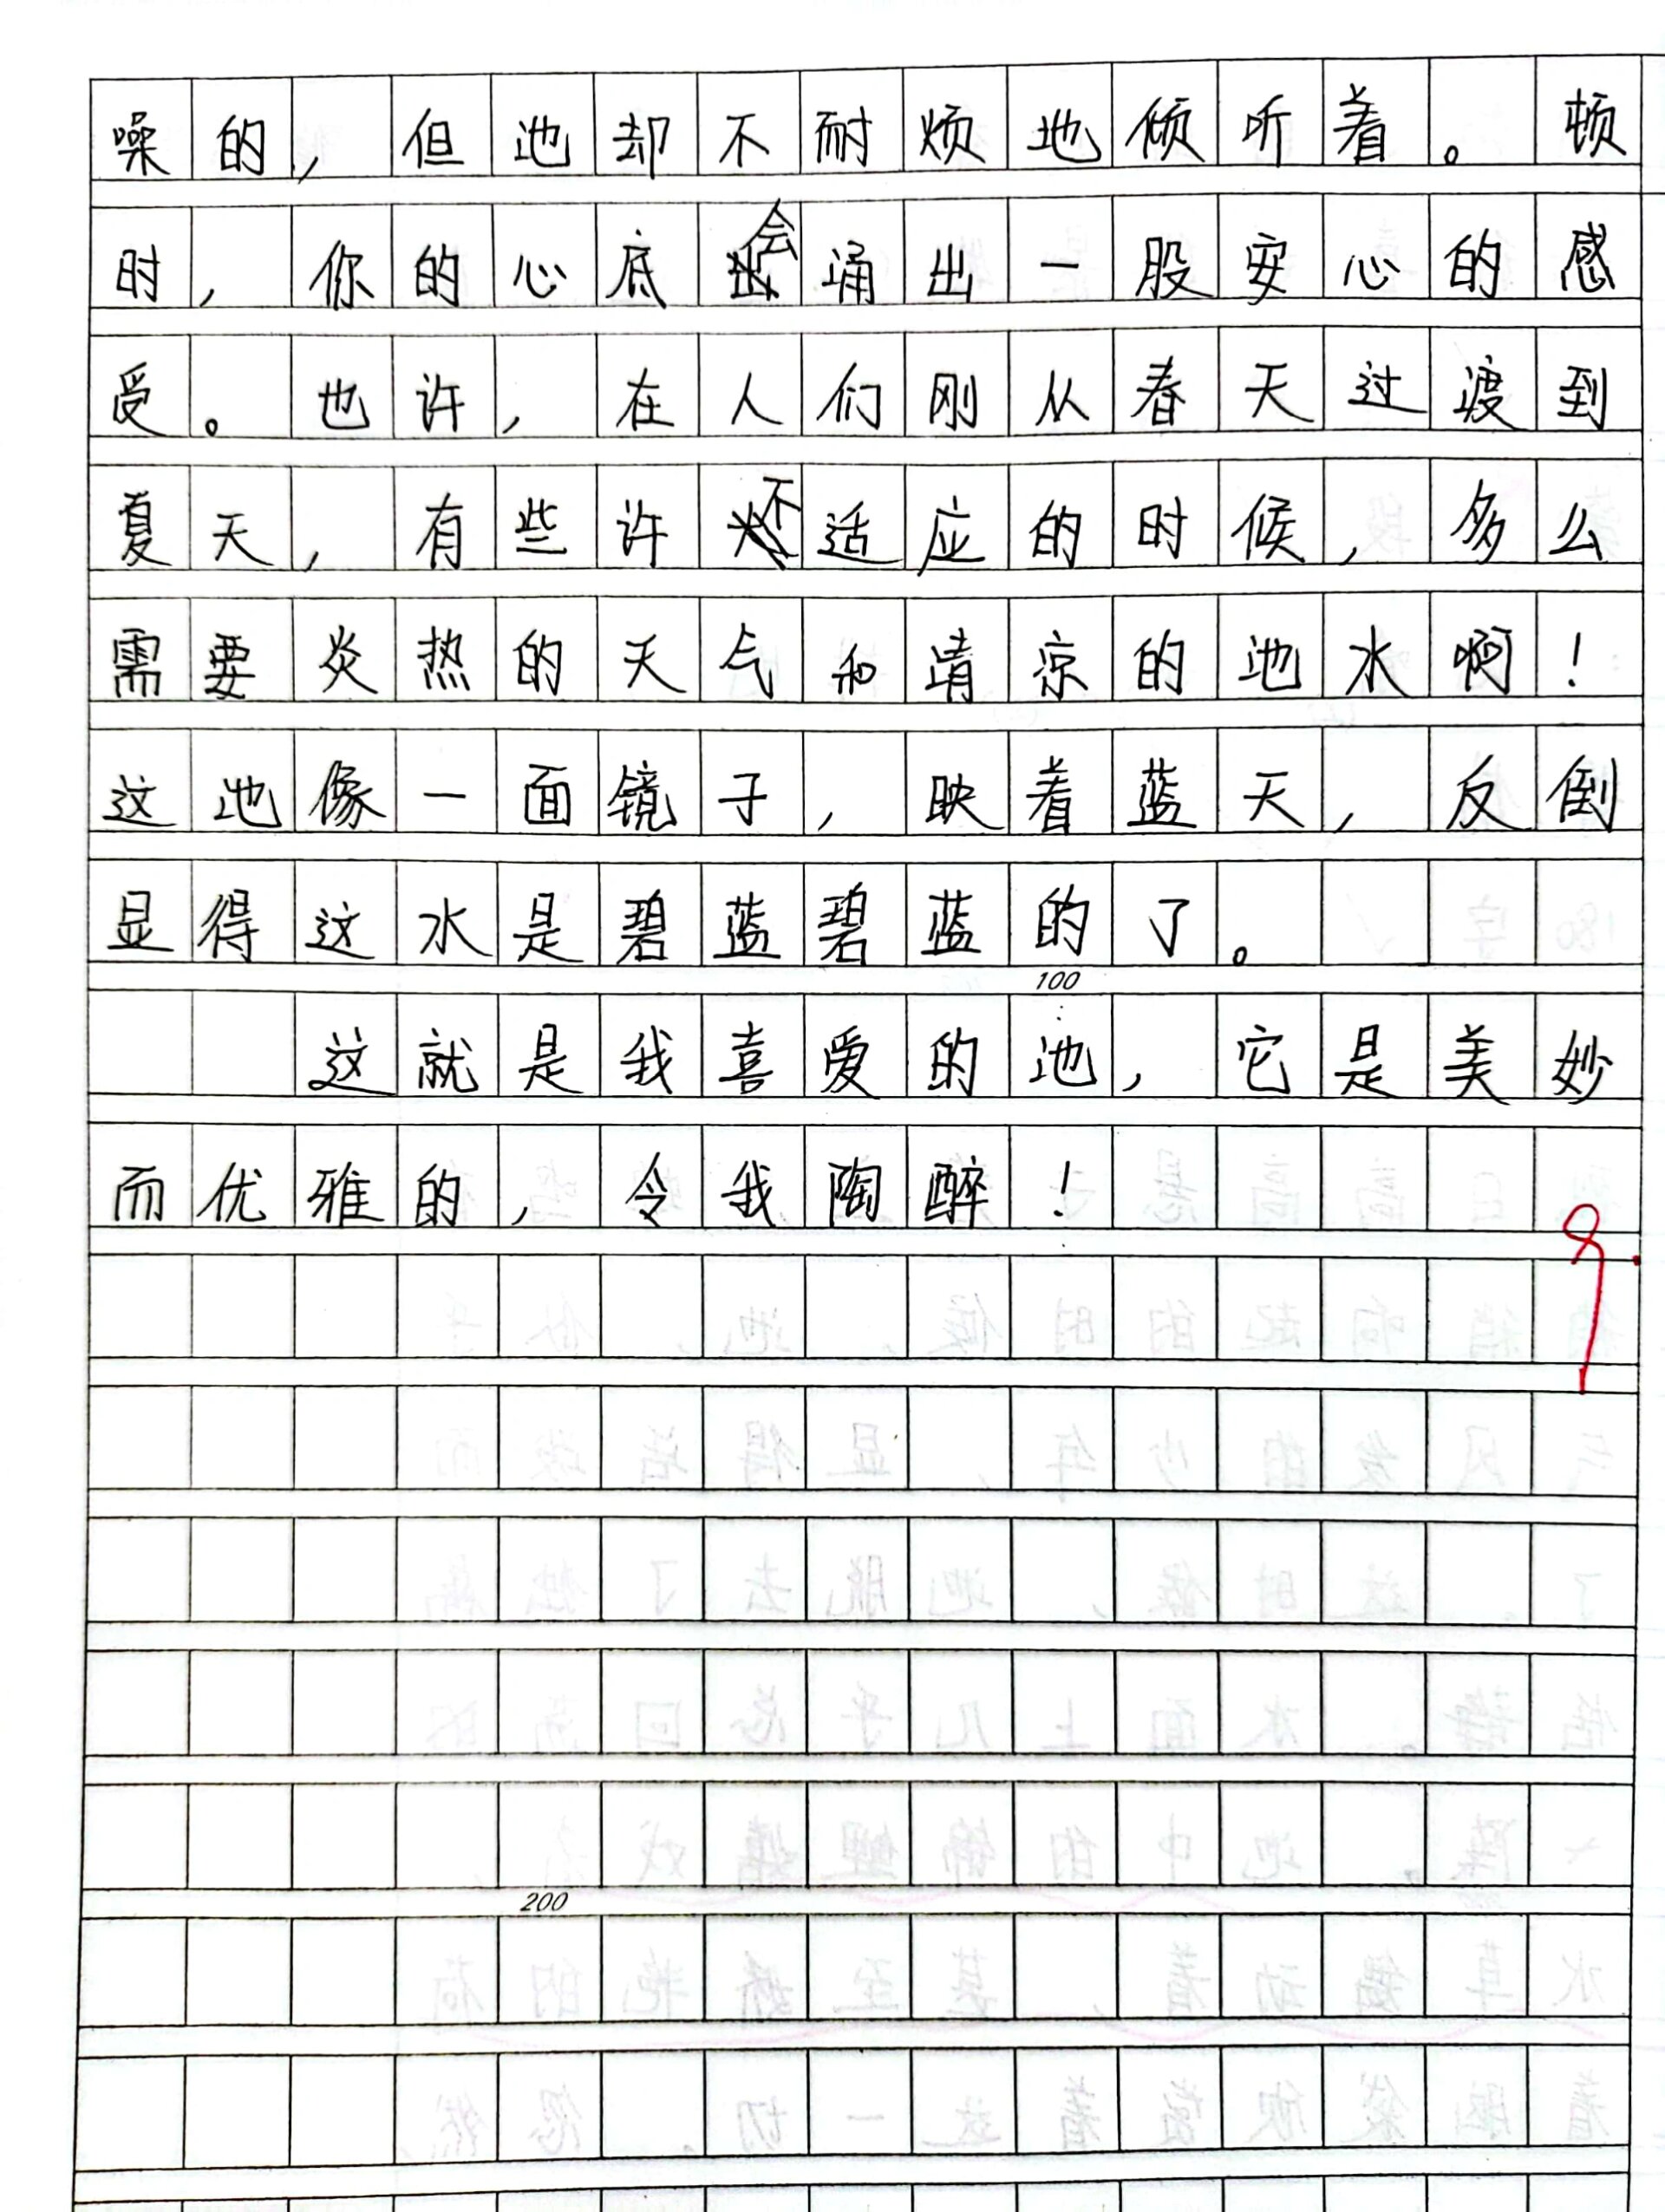 噪的，但池却不耐烦地倾听着。顿
时，你的心底会涌出一股安心的感
受。也许，在人们刚从春天过渡到
夏天，有些许不适应的时候，多么
需要炎热的天气和清凉的池水啊！
这池像一面镜子，映着蓝天，反倒
显得这水是碧蓝碧蓝的了。
100
这就是我喜爱的池，它是美妙
而优雅的，令我陶醉！
200